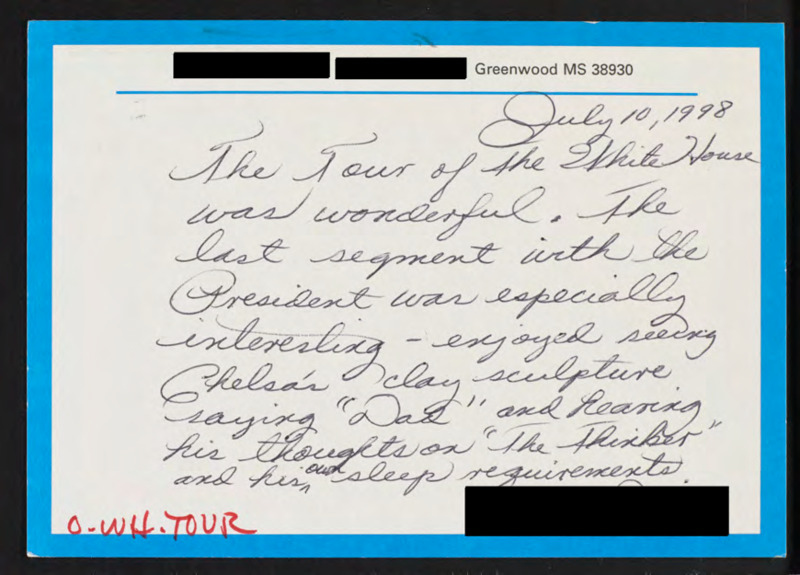 Greenwood MS 38930
July 10, 1998
The Tour of the White House
was wonderful. The
last segment with the
President was especially
interesting - enjoyed seeing
Chelsa's clay sculpture
saying "Dad" and hearing
his thoughts on "The Thinker"
and his own sleep requirements.
O-WH.TOUR